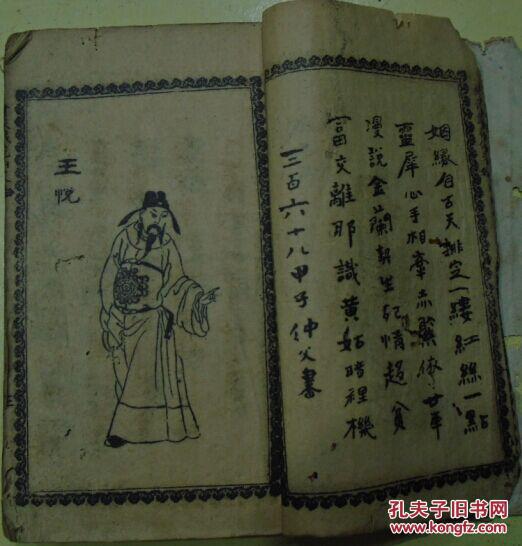 姻緣自古天排定一縷紅絲一點
靈犀心手相牽赤繫
漫說金蘭契生死情超貧
富交離耶識黄姑暗裡機
三百六十八甲子仲父書
王悅
孔夫子旧书网
www.kongfz.com